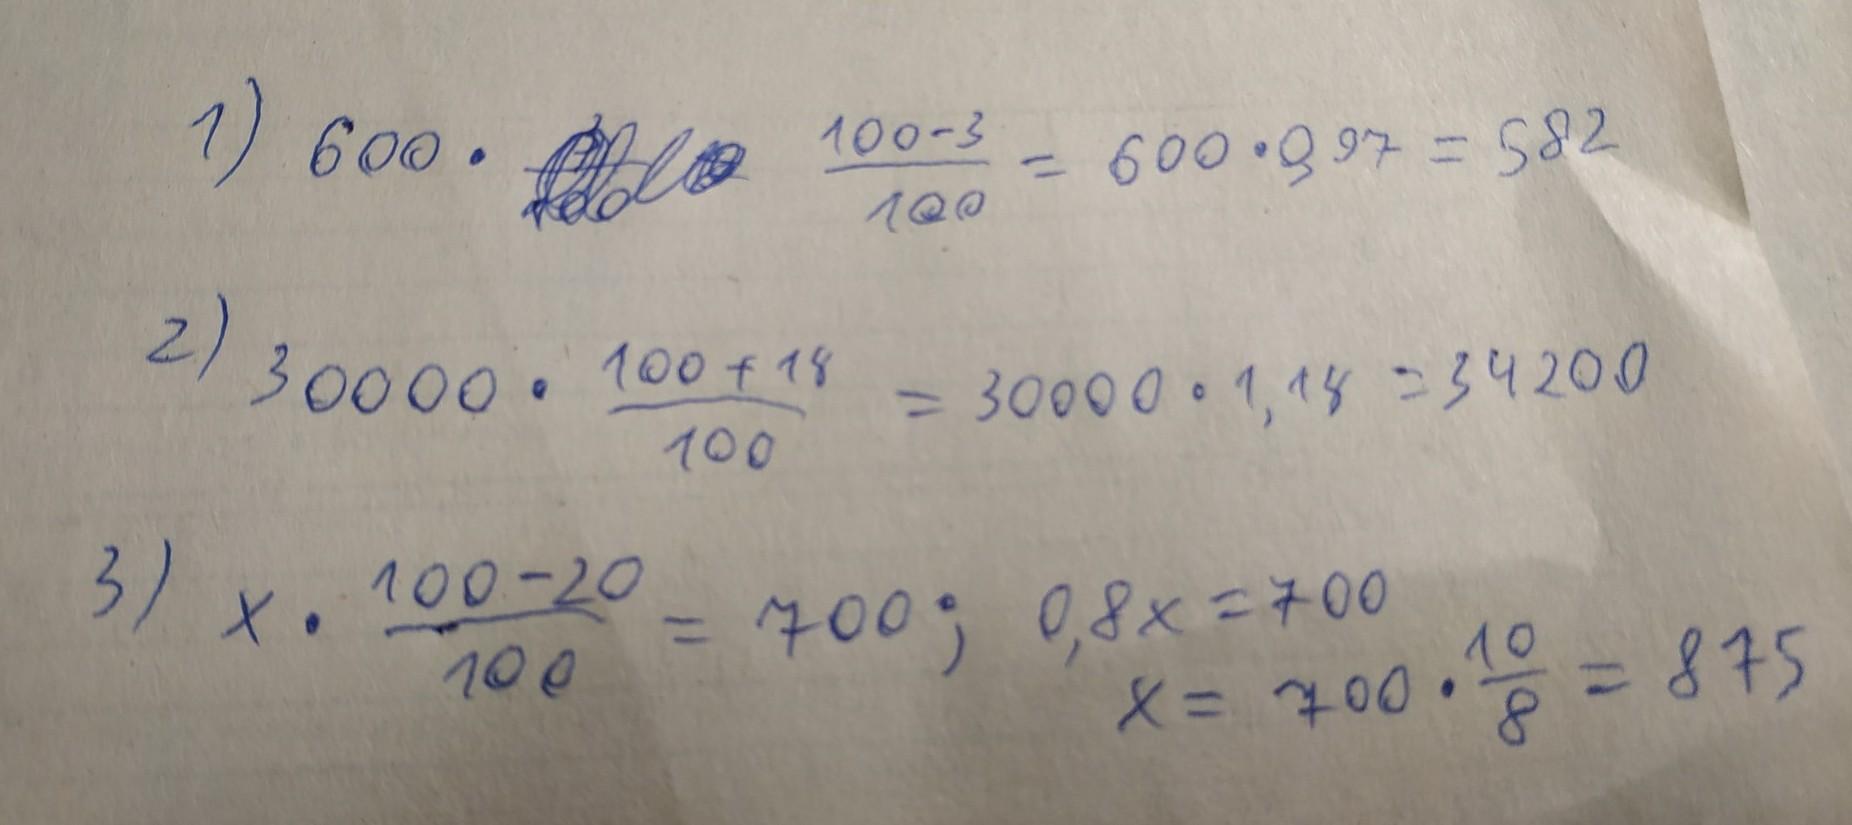 1) 600 · (100-3)/100 = 600 · 0,97 = 582
2) 30000 · (100+18)/100 = 30000 · 1,18 = 34200
3) x · (100-20)/100 = 700; 0,8x = 700
x = 700 · 10/8 = 875